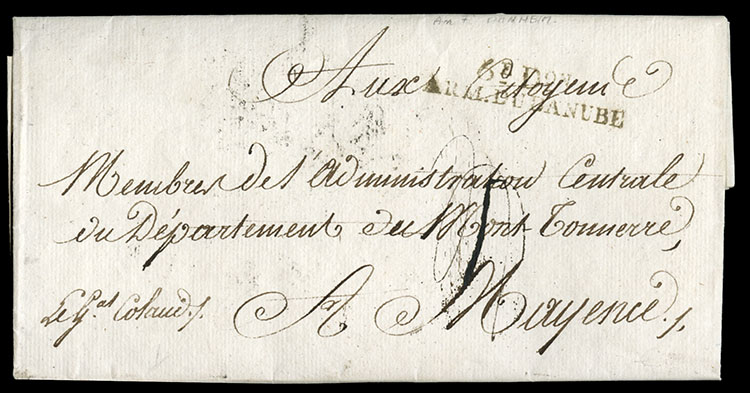 Aux Citoyens
ARM. DU DANUBE
Membres de l'administration Centrale
du Département du Mont-Tonnerre,
Le Gal Colaud
A Mayence